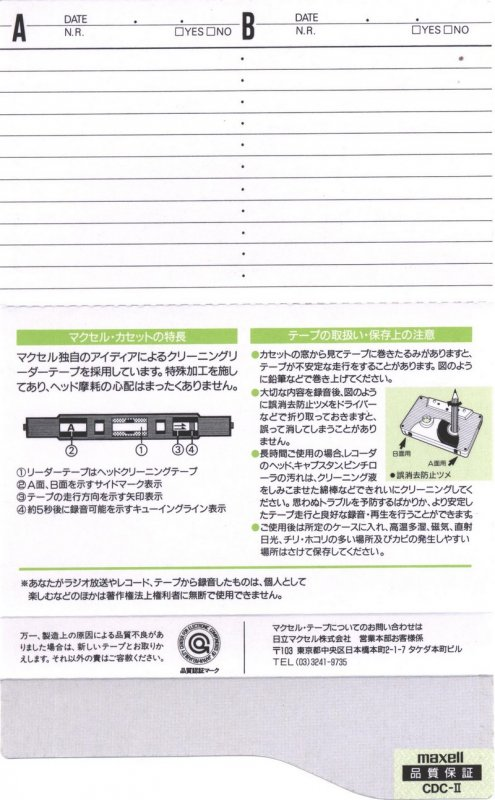 A
DATE ・ ・
N.R. □YES □NO
B
DATE ・ ・
N.R. □YES □NO
マクセル・カセットの特長
マクセル独自のアイディアによるクリーニングリ
ーダーテープを採用しています。特殊加工を施し
てあり、ヘッド摩耗の心配はまったくありません。
A
② ① ③ ④
①リーダーテープはヘッドクリーニングテープ
②A面、B面を示すサイドマーク表示
③テープの走行方向を示す矢印表示
④約5秒後に録音可能を示すキューイングライン表示
テープの取扱い・保存上の注意
●カセットの窓から見てテープに巻きたるみがありますと、
テープが不安定な走行をすることがあります。図のよう
に鉛筆などで巻き上げてください。
●大切な内容を録音後、図のよう
に誤消去防止ツメをドライバー
などで折り取っておきますと、
誤って消してしまうことがあり
ません。
B面用
A面用
●誤消去防止ツメ
●長時間ご使用の場合、レコーダ
のヘッド、キャプスタン、ピンチロ
ーラの汚れは、クリーニング液
をしみこませた綿棒などできれいにクリーニングしてく
ださい。思わぬトラブルを予防するばかりか、より安定し
たテープ走行と良好な録音・再生を行うことができます。
●ご使用後は所定のケースに入れ、高温多湿、磁気、直射
日光、チリ・ホコリの多い場所及びカビの発生しやすい
場所はさけて保存してください。
※あなたがラジオ放送やレコード、テープから録音したものは、個人として
楽しむなどのほかは著作権法上権利者に無断で使用できません。
万一、製造上の原因による品質不良があ
りました場合は、新しいテープとお取りか
えします。それ以外の責はご容赦ください。
品質認証マーク
マクセル・テープについてのお問い合わせは
日立マクセル株式会社 営業本部お客様係
〒103 東京都中央区日本橋本町2-1-7 タケダ本町ビル
TEL (03)3241-9735
maxell
品質保証
CDC-II